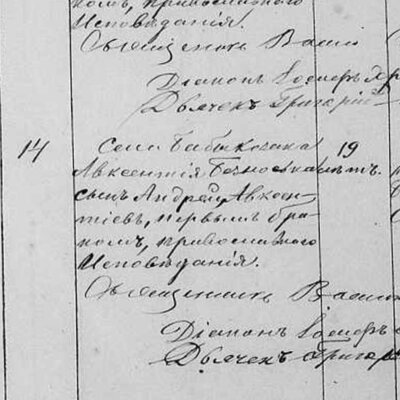 комъ, православнаго
Исповѣданія.
Священникъ Васил
Діаконъ Іосифъ
Дьячекъ Григорій
14
Села
19
Авксентія лѣтъ.
сынъ Андрей Авксен-
тіевъ, первымъ бра-
комъ, православнаго
Исповѣданія.
Священникъ Васил
Діаконъ Іосифъ
Дьячекъ Григор